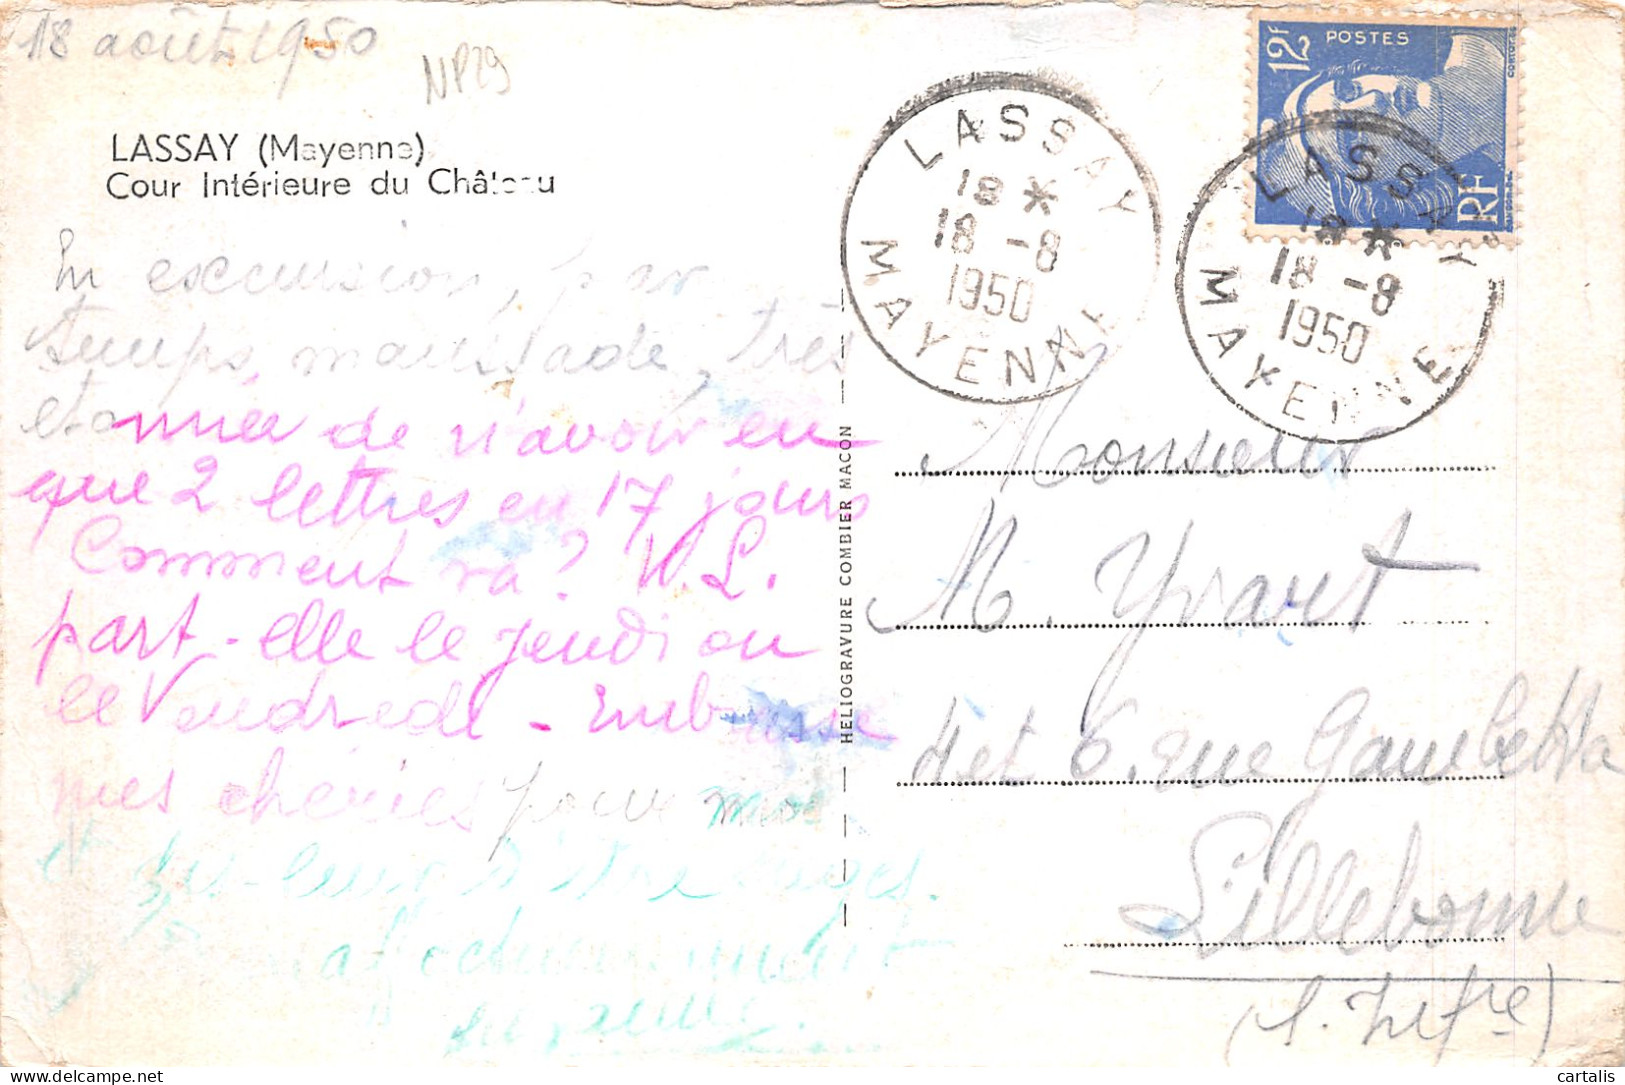 18 août 1950
NP29
LASSAY (Mayenne)
Cour Intérieure du Château
En excursion, par
temps maussade, très
étonnée de n'avoir eu
que 2 lettres en 17 jours
Comment va? M.L.
part-elle le Jeudi ou
le Vendredi - Embrasse
mes chéries pour moi
et dis-leur d'être sages.
affectueusement
HELIOGRAVURE COMBIER MACON
12F POSTES
RF
LASSAY
18 *
18 -8
1950
MAYENNE
LASSAY
18 *
18 -8
1950
MAYENNE
Monsieur
M. Yvart
4 et 6. rue Gambetta
Lillebonne
(S. Infre)
cartalis